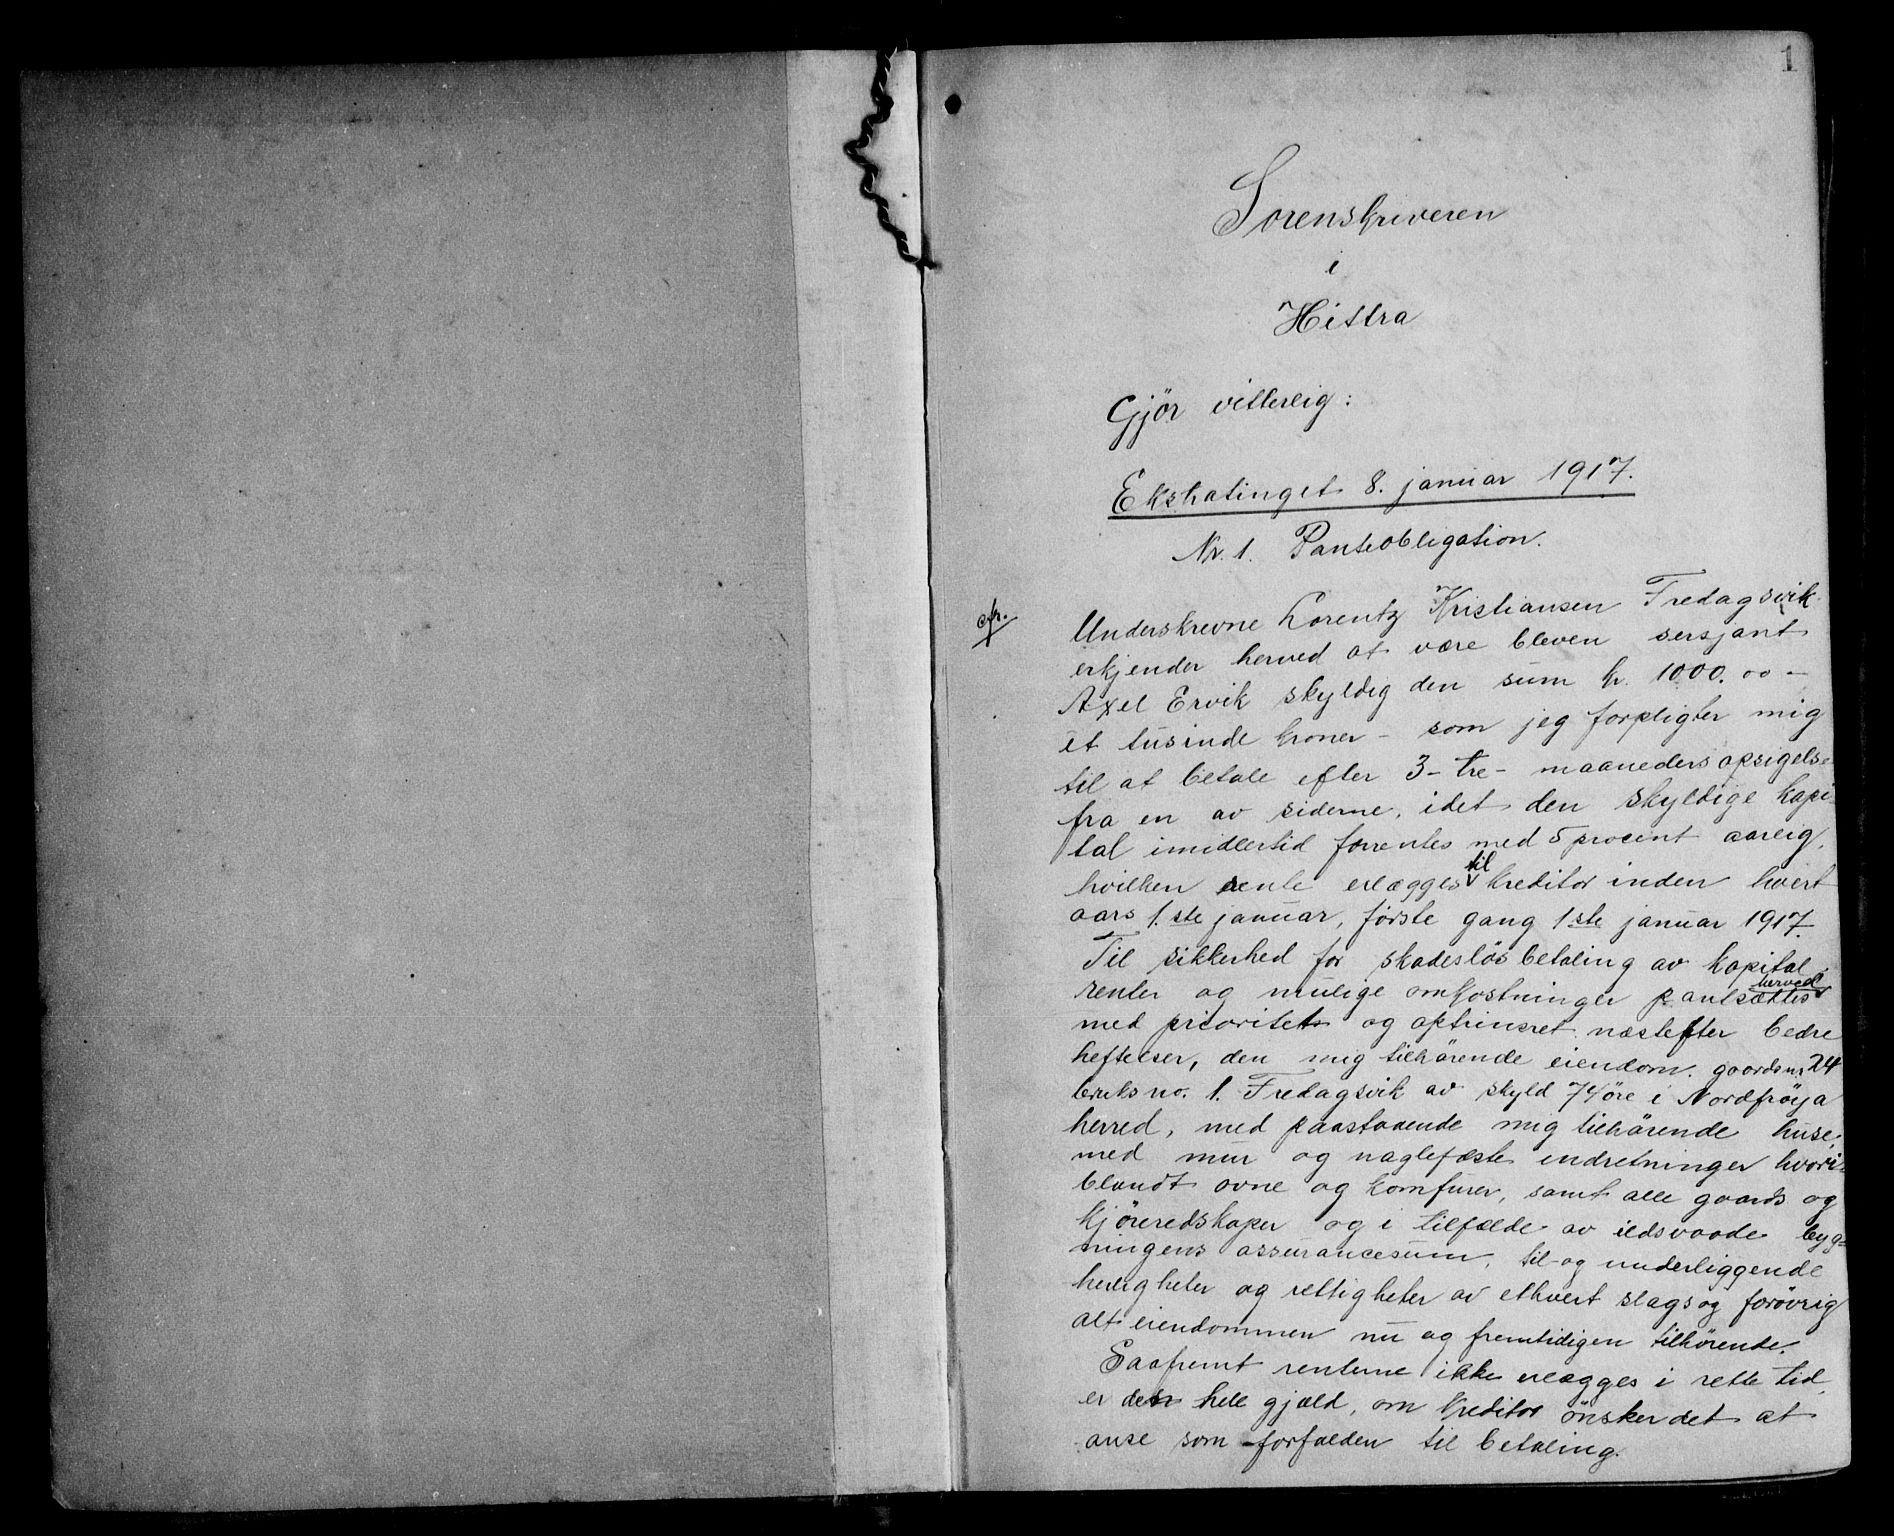 1
Sorenskriveren
i
Hittra
Gjör vitterlig:
Ekstratinget 8. januar 1917.
Nr. 1. Panteobligation.
cfr.
Underskrevne Lorentz Kristiansen Fredagsvik
erkjender herved at være bleven sersjant
Axel Ervik skyldig den sum kr. 1000.00 –
et tusinde kroner – som jeg forpligter mig
til at betale efter 3 – tre – maaneders opsigelse
fra en av siderne, idet den skyldige kapi-
tal imidlertid forrentes med 5 procent aarlig,
hvilken rente erlægges til kreditor inden hvert
aars 1.ste januar, første gang 1ste januar 1917.
Til sikkerhed for skadesløs betaling av kapital,
renter og mulige omkostninger pantsættes herved
med prioritet og optrinsret næstefter bedre
heftelser, den mig tilhörende eiendom gaardsnr 24
bruksno. 1. Fredagsvik av skyld 74 öre i Nordfröya
herred, med paastaaende mig tilhörende huse,
med mur og naglefæste indretninger hvori-
blandt ovne og komfurer, samt alle gaards og
kjöreredskaper og i tilfælde av ildsvaade byg=
ningens assurancesum, til- og underliggende
herligheter og rettigheter av ethvert slags og forövrig
alt eiendommen nu og fremtidigen tilhörende.
Saafremt renterne ikke erlægges i rette tid,
er den hele gjæld, om kreditor önsker det at
anse som forfalden til betaling.